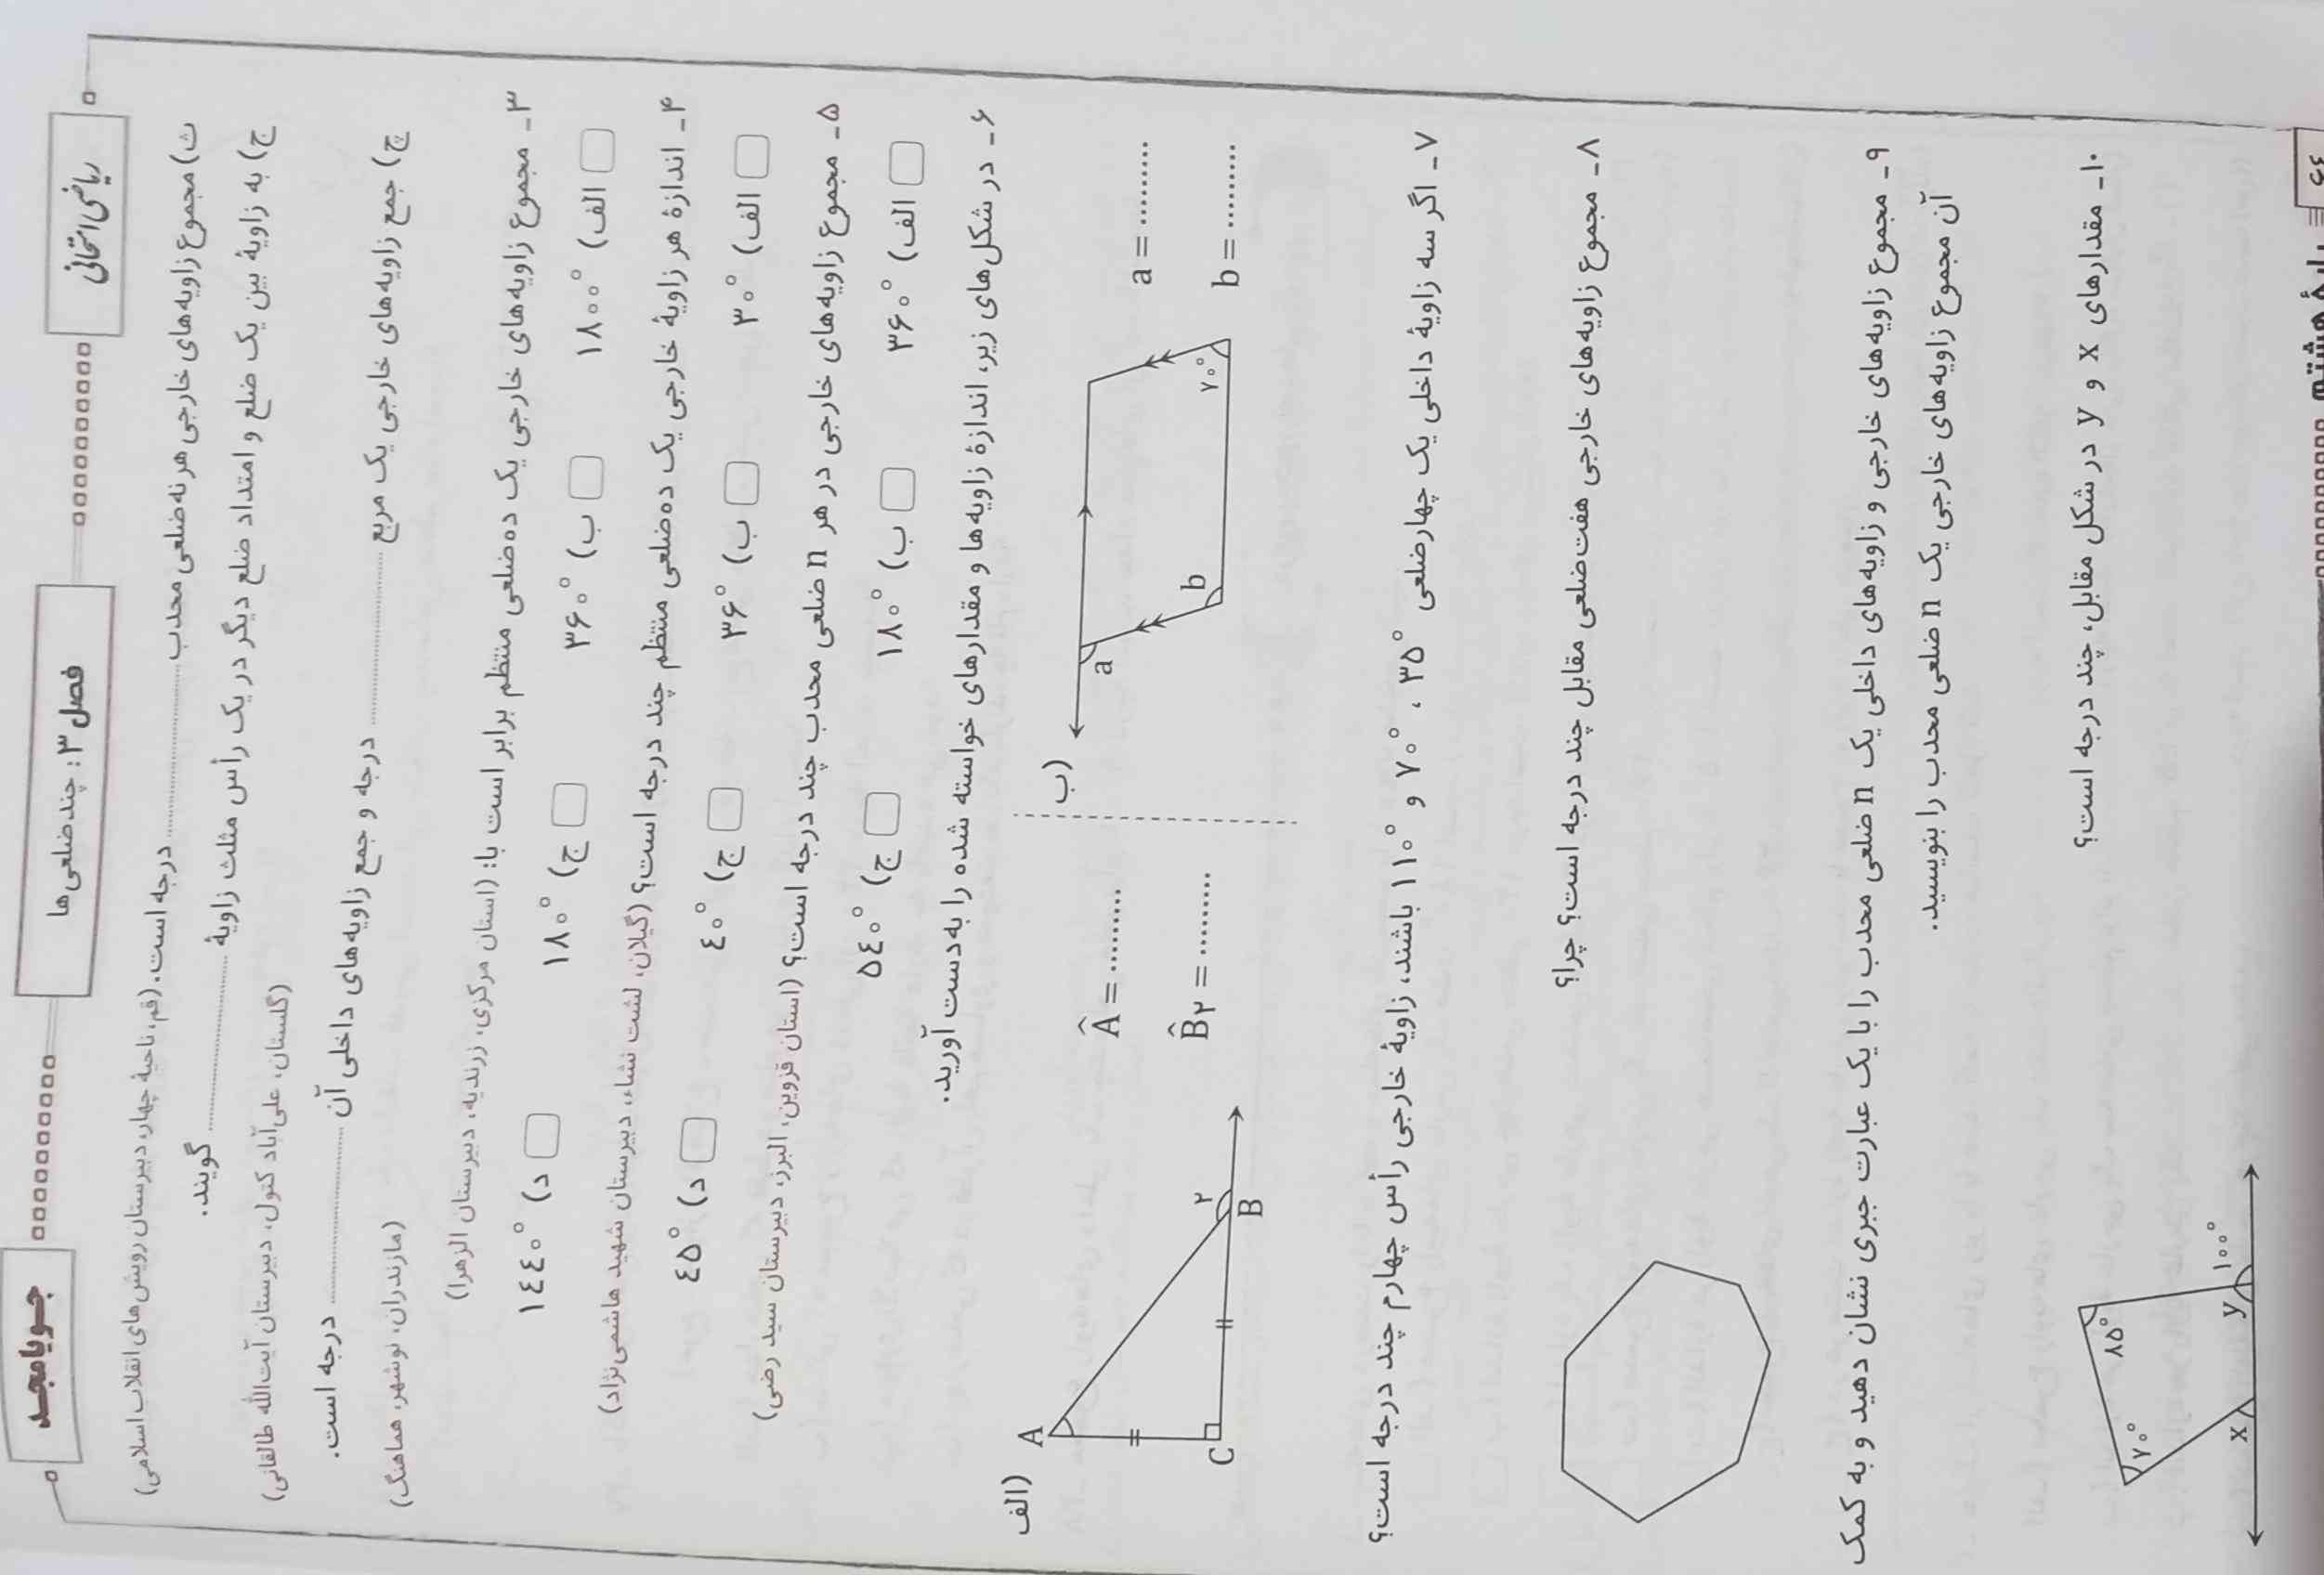 ریاضی امتحانی
فصل ۳: چندضلعی‌ها
جویا مجد
ث) مجموع زاویه‌های خارجی هر نه‌ضلعی محدب .......... درجه است. (قم، ناحیهٔ چهار، دبیرستان رویش‌های انقلاب اسلامی)
ج) به زاویهٔ بین یک ضلع و امتداد ضلع دیگر در یک رأس مثلث زاویهٔ .......... گویند.
(گلستان، علی‌آباد کتول، دبیرستان آیت‌الله طالقانی)
چ) جمع زاویه‌های خارجی یک مربع .......... درجه و جمع زاویه‌های داخلی آن .......... درجه است.
(مازندران، نوشهر، هماهنگ)
۳ـ مجموع زاویه‌های خارجی یک ده‌ضلعی منتظم برابر است با: (استان مرکزی، زرندیه، دبیرستان الزهرا)
الف) ۱۸۰۰° ب) ۳۶۰° ج) ۱۸۰° د) ۱۴۴۰°
۴ـ اندازهٔ هر زاویهٔ خارجی یک ده‌ضلعی منتظم چند درجه است؟ (گیلان، لشت نشاء، دبیرستان شهید هاشمی‌نژاد)
الف) ۳۰° ب) ۳۶° ج) ۴۰° د) ۴۵°
۵ـ مجموع زاویه‌های خارجی در هر n ضلعی محدب چند درجه است؟ (استان قزوین، البرز، دبیرستان سید رضی)
الف) ۳۶۰° ب) ۱۸۰° ج) ۵۴۰°
۶ـ در شکل‌های زیر، اندازهٔ زاویه‌ها و مقدارهای خواسته شده را به‌دست آورید.
الف)
A
B
C
۲
Â = ..........
B̂۲ = ..........
ب)
a
b
۷۰°
a = ..........
b = ..........
۷ـ اگر سه زاویهٔ داخلی یک چهارضلعی ۳۵° ، ۷۰° و ۱۱۰° باشند، زاویهٔ خارجی رأس چهارم چند درجه است؟
۸ـ مجموع زاویه‌های خارجی هفت‌ضلعی مقابل چند درجه است؟ چرا؟
۹ـ مجموع زاویه‌های خارجی و زاویه‌های داخلی یک n ضلعی محدب را با یک عبارت جبری نشان دهید و به کمک
آن مجموع زاویه‌های خارجی یک n ضلعی محدب را بنویسید.
۱۰ـ مقدارهای x و y در شکل مقابل، چند درجه است؟
۷۰°
۸۵°
x
y
۱۰۰°
۶۶
هشتم